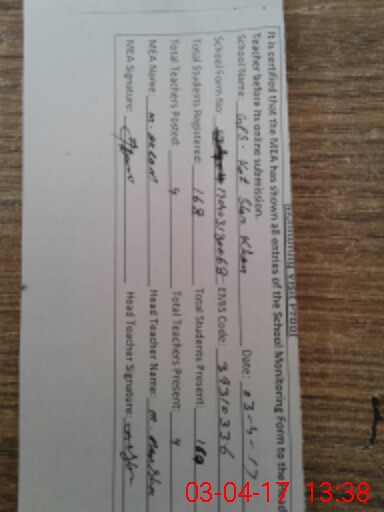 Monitoring Visit Proof
It is certified that the MEA has shown all entries of the School Monitoring Form to the Head
Teacher before its online submission.
School Name: GPS. Kot Sher Khan Date: 03-4-17
School Form No: EMIS Code: 39310336
Total Students Registered: 168 Total Students Present: 160
Total Teachers Posted: 4 Total Teachers Present: 4
MEA Name: M. Akram Head Teacher Name: M.
MEA Signature: Head Teacher Signature:
03-04-17 13:38